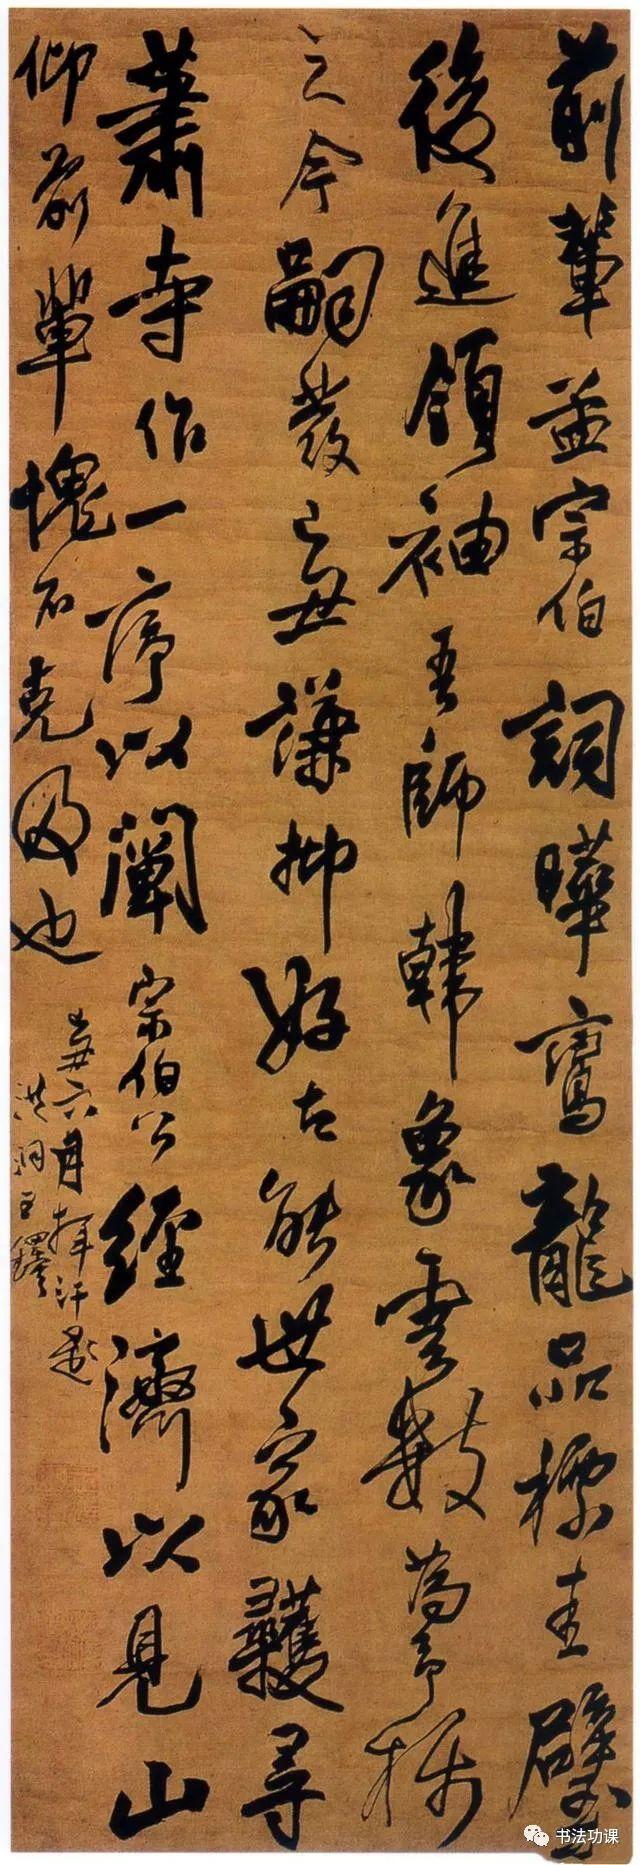 前輩孟宗伯詞曄鸞龍品標圭璧
後進領袖吾師韓象雲數為予稱
之今嗣發己丑謙抑好古能世家學尋
蕭寺作一序以闡宗伯公經濟以見山
仰前輩愧不克為也
丑六月揮汗題
洪洞王鐸
书法功课